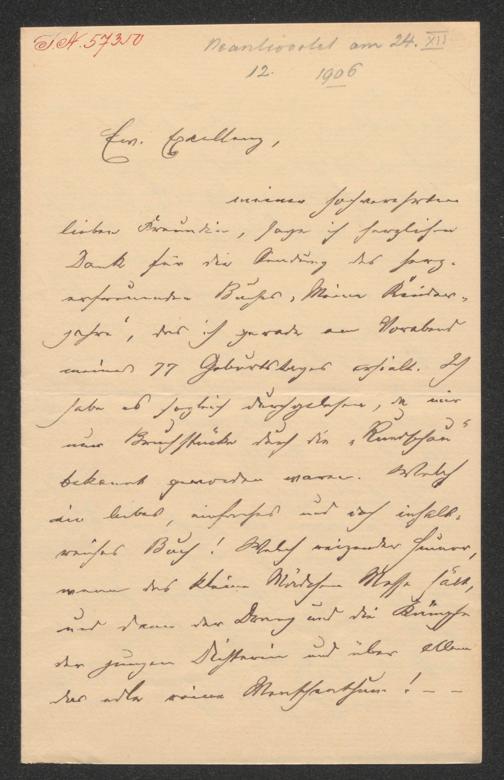 I.N. 57350
Beantwortet am 24. XII
12. 1906
Ew. Excellenz,
meiner hochverehrten
lieben Freundin, sage ich herzlichen
Dank für die Sendung des herz-
erfreuenden Buches „Meine Kinder-
jahre", das ich gerade am Vorabend
meines 77 Geburtstages erhielt. Ich
habe es sogleich durchgelesen, da mir
nur Bruchstücke durch die „Rundschau"
bekannt geworden waren. Welch
ein liebes, einfaches und doch inhalt-
reiches Buch! Welch reizender Humor,
wenn das kleine Mädchen Messe hält,
und dann der Drang und die Kämpfe
der jungen Dichterin und über allem
das edle reine Menschenthum! – –